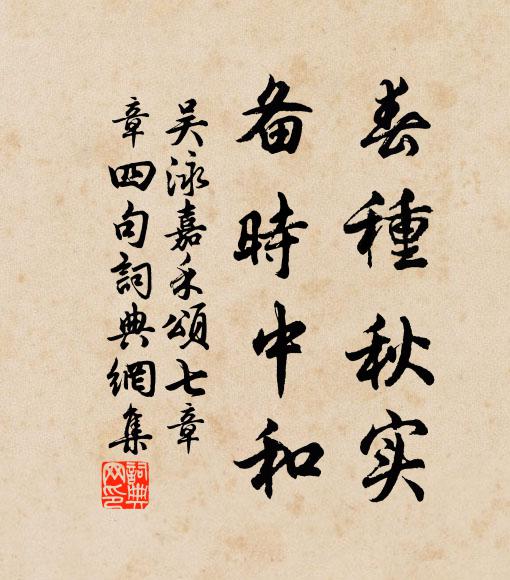 春種秋实
备時中和
吴泳嘉禾頌七章
章四句詞典網集
詞典
网印